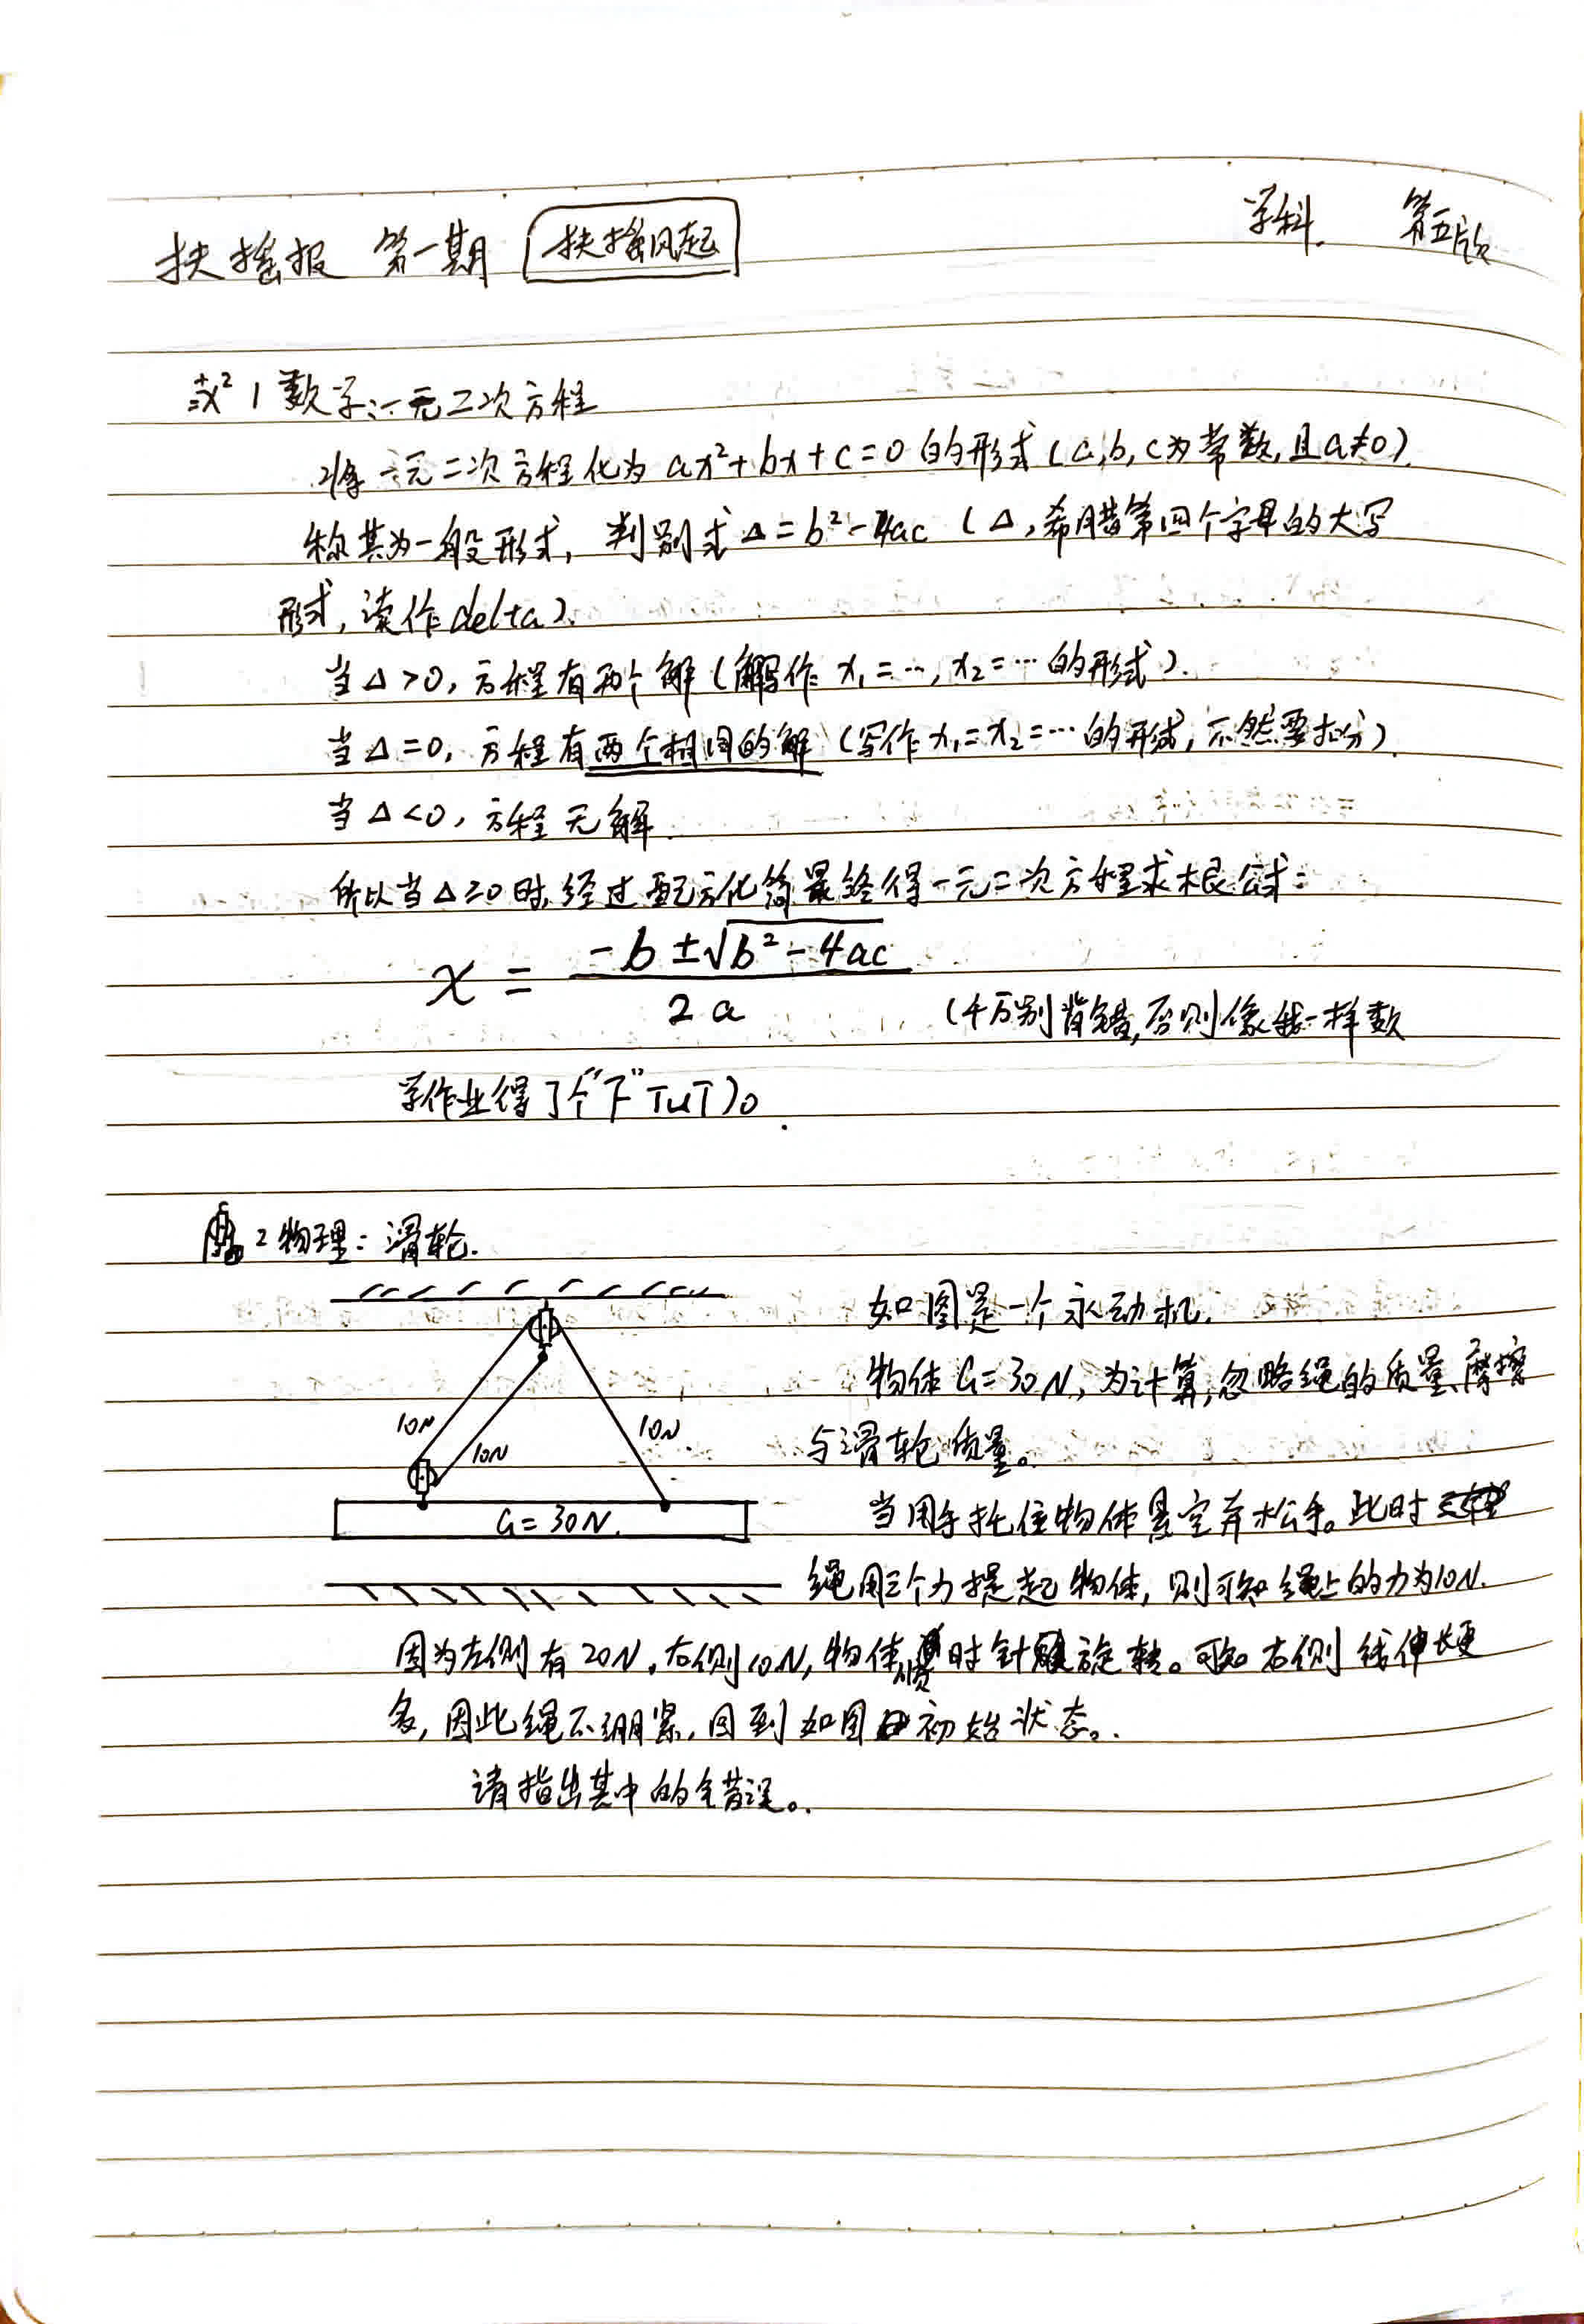 扶摇报 第一期 扶摇风起 学科 第五版
1 数学:一元二次方程
将一元二次方程化为 ax²+bx+c=0 的形式(a,b,c为常数,且a≠0).
称其为一般形式, 判别式 Δ=b²-4ac (Δ,希腊第四个字母的大写
形式,读作delta).
当Δ>0,方程有两个解(写作 x₁=…,x₂=…的形式).
当Δ=0,方程有两个相同的解(写作x₁=x₂=…的形式,不然要扣分).
当Δ<0,方程无解.
所以当Δ≥0时,经过配方化简最终得一元二次方程求根公式:
x = (-b±√(b²-4ac))/(2a)
(千万别背错,否则像我一样数
学作业得了个"下"TuT)。
2 物理:滑轮.
10N
10N
10N.
G=30N.
如图是一个永动机.
物体G=30N,为计算,忽略绳的质量、摩擦
与滑轮质量。
当用手托住物体悬空并松手。此时
绳用三个力提起物体,则可知绳上的力为10N.
因为左侧有20N,右侧10N,物体顺时针旋转。可知右侧线伸长更
多,因此绳不绷紧,回到如图初始状态。
请指出其中的错误。